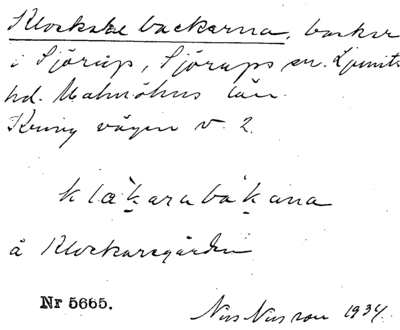 Klockarebackarna, backar
i Sjörup, Sjörups sn. Ljunits
hd. Malmöhus län.
Kring vägen v. 2.
klåkarabakana
å Klockaregården
Nr 5665.
Nils Nilsson 1934.